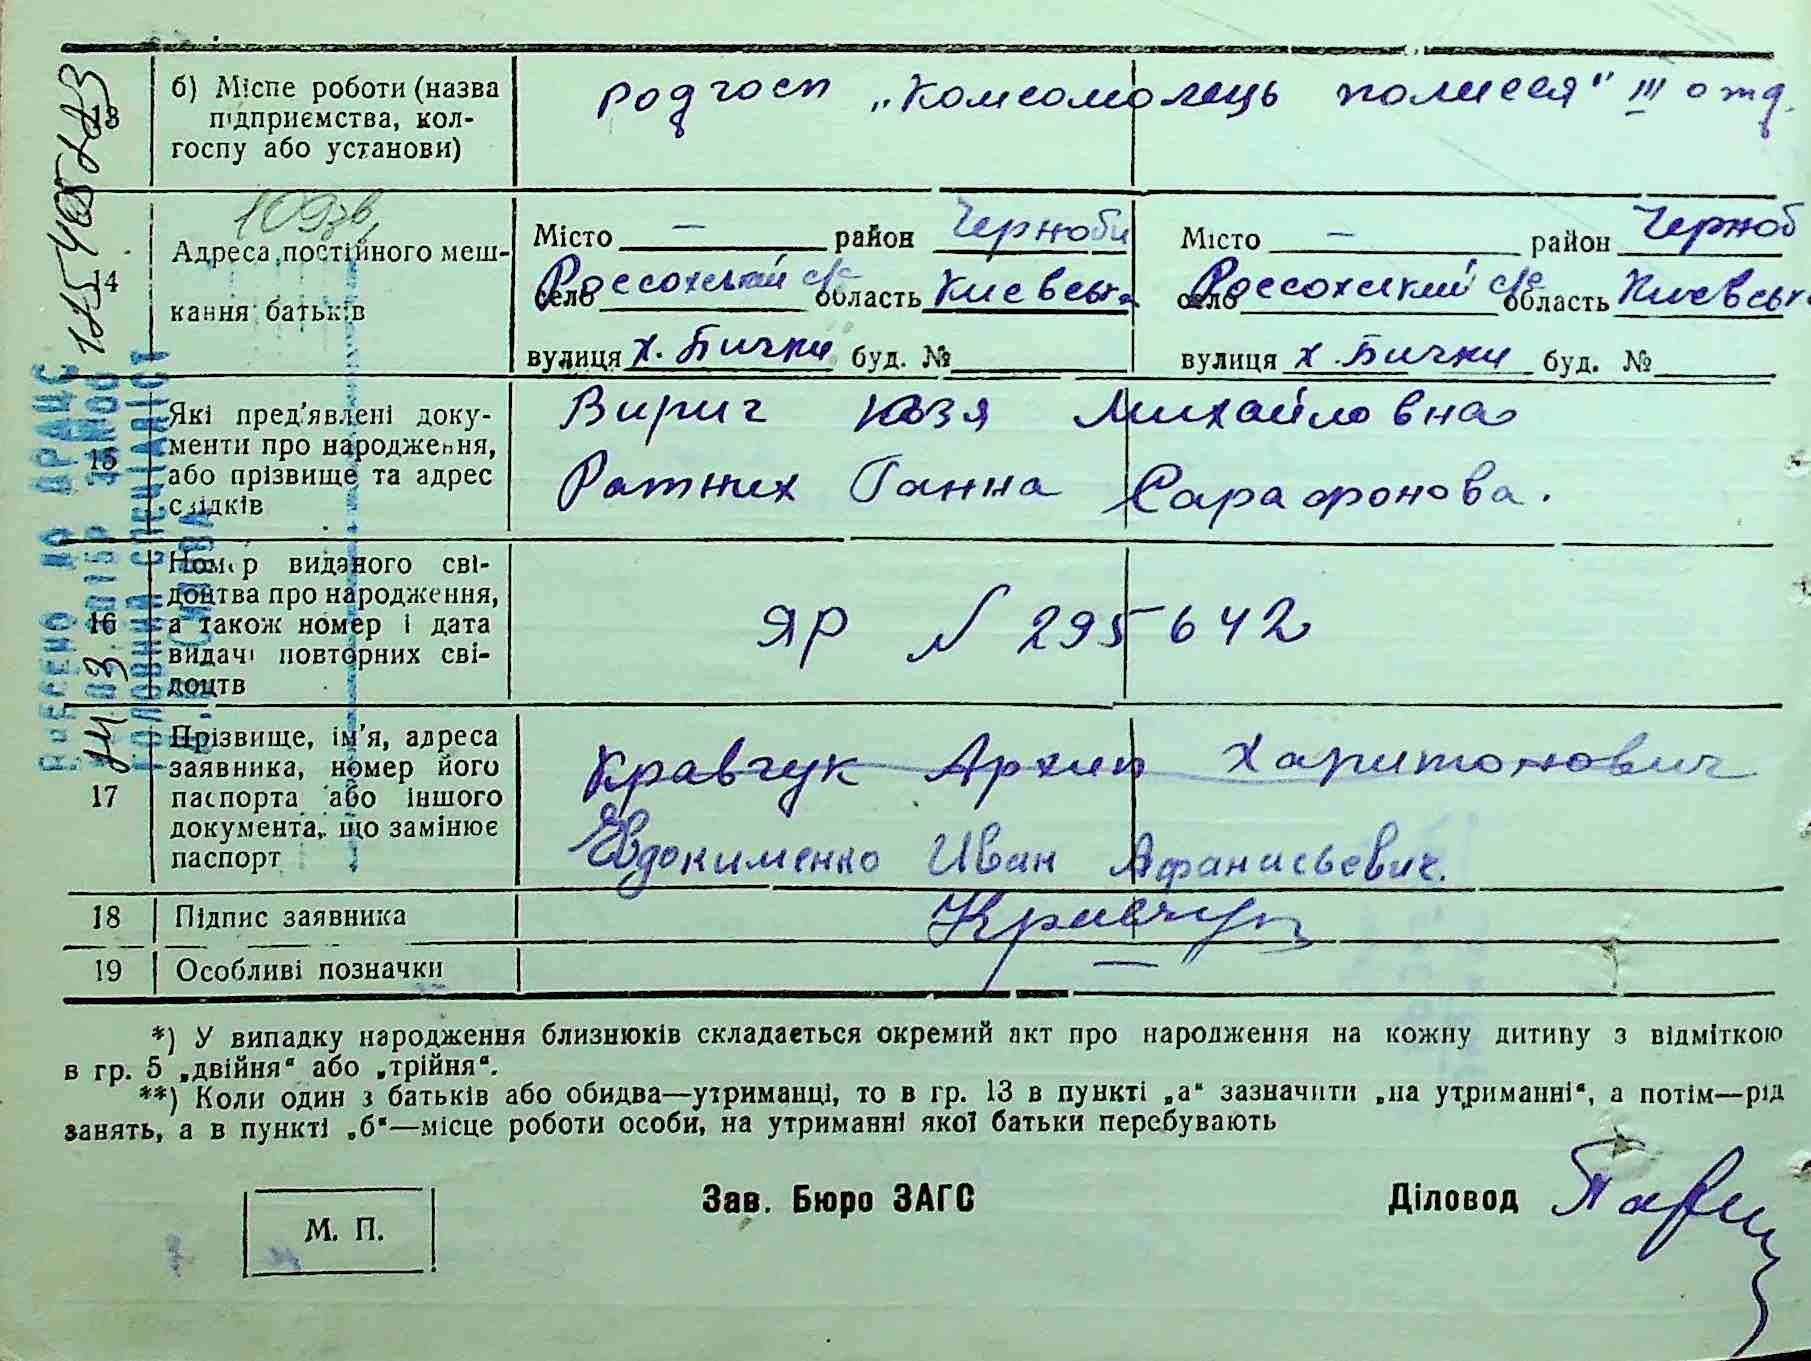 13 б) Місце роботи (назва підприємства, кол-
госпу або установи)
родгосп „Комсомолець полисся" III отд.
109зв
14 Адреса постійного меш-
кання батьків
Місто — район Чернобы
Россохский с/с село область Киевська
вулиця х. Бички буд. №
Місто — район Черноб
Россохский с/с село область Киевськ
вулиця х. Бички буд. №
15 Які пред'явлені доку-
менти про народження,
або прізвище та адрес
свідків
Вирич Юзя Михайловна
Ратних Ганна Сарафонова.
16 Номер виданого сві-
доцтва про народження,
а також номер і дата
видачі повторних сві-
доцтв
ЯР № 295642
17 Прізвище, ім'я, адреса
заявника, номер його
паспорта або іншого
документа, що замінює
паспорт
Кравчук Архип Харитонович
Евдокименко Иван Афанасьевич.
18 Підпис заявника
Кравчук
19 Особливі позначки —
*) У випадку народження близнюків складається окремий акт про народження на кожну дитину з відміткою
в гр. 5 „двійня" або „трійня".
**) Коли один з батьків або обидва—утриманці, то в гр. 13 в пункті „а" зазначити „на утриманні", а потім—рід
занять, а в пункті „б"—місце роботи особи, на утриманні якої батьки перебувають
М. П.
Зав. Бюро ЗАГС
Діловод
ВНЕСЕНО ДО ДРАЦС
ГОЛОВНИЙ СПЕЦІАЛІСТ